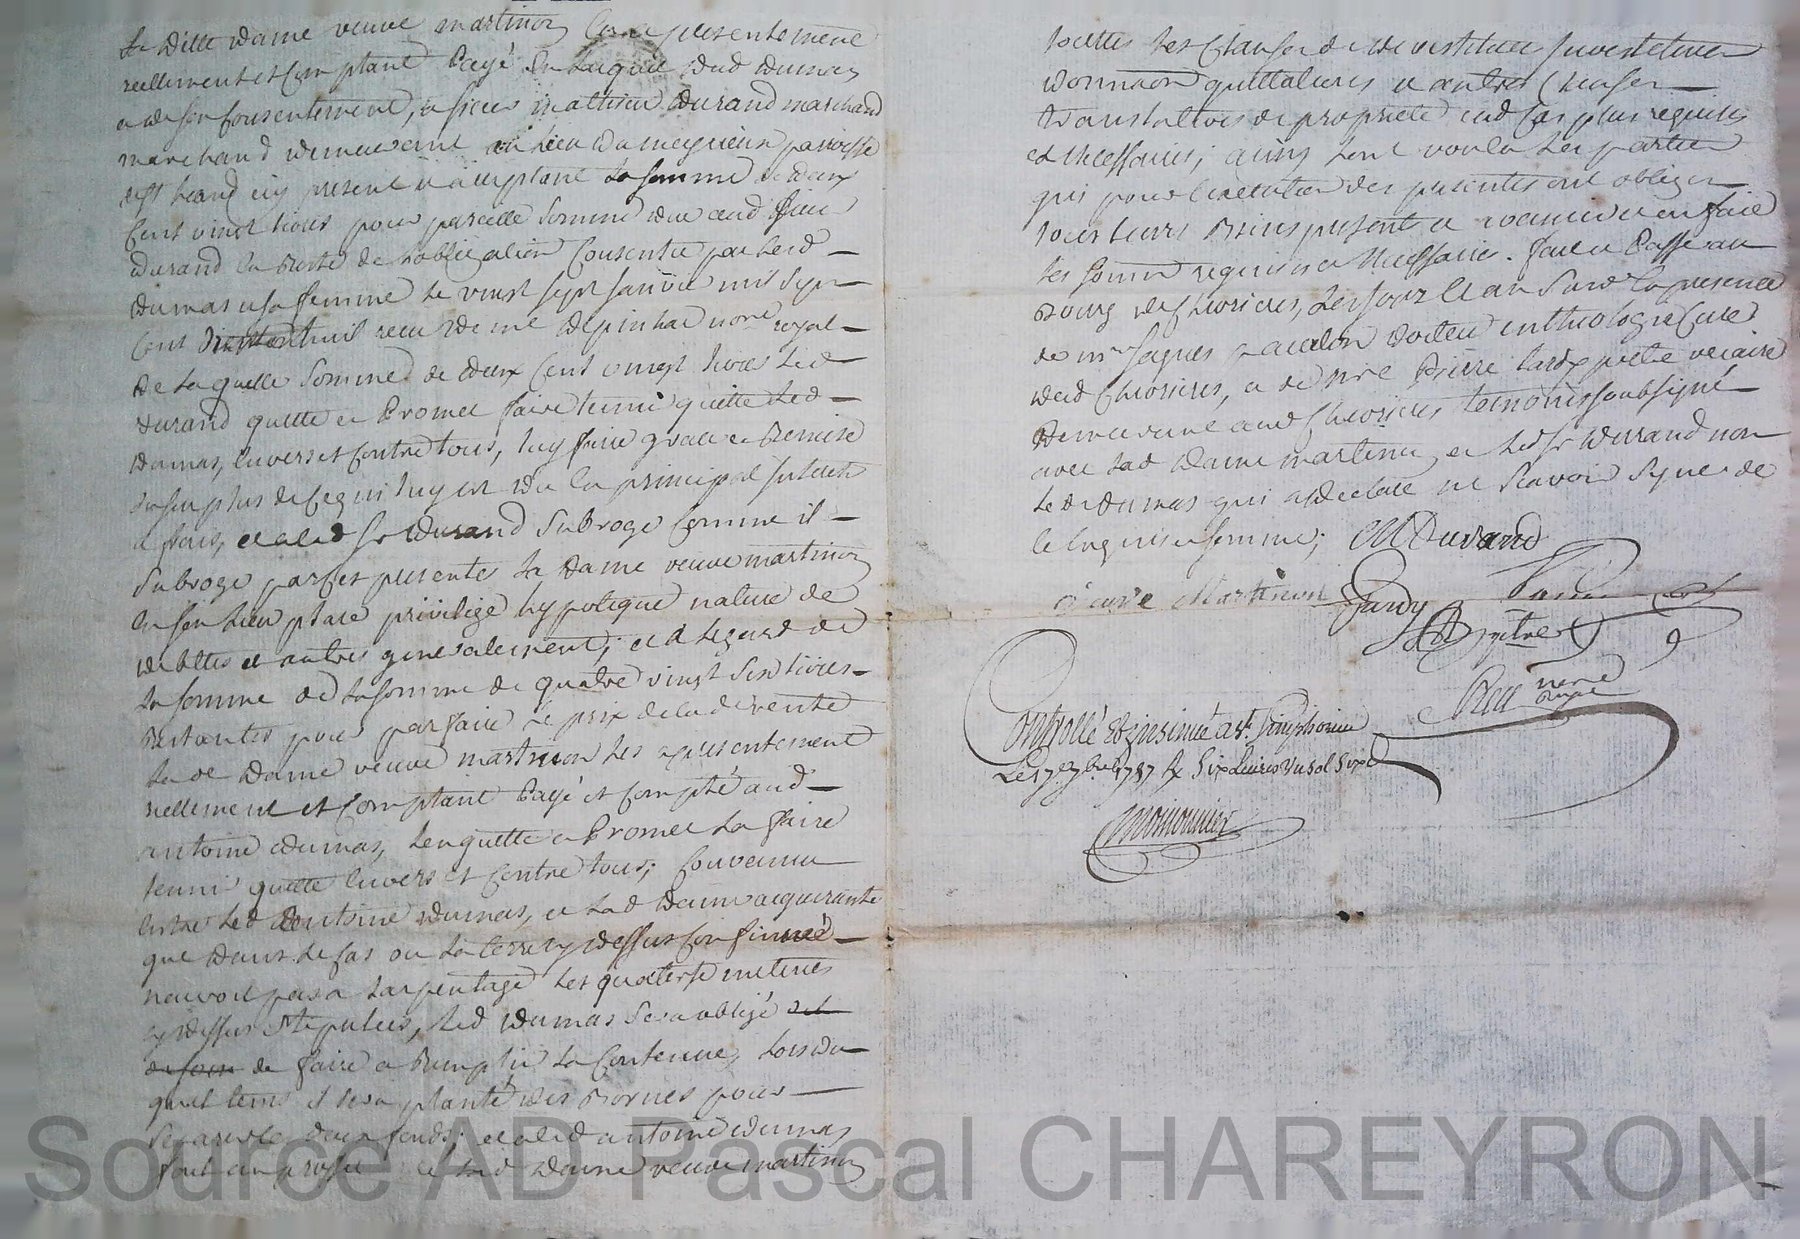 la ditte dame veuve martinon l'a presentement
reellement et comptant Payé en lacquit dud dumas
et de son Consentement, a sieur mathieu durand marchand
marchand demeurant au lieu du meygrieux paroisse
present et acceptant la somme de deux
Cent vingt livres pour pareille somme due aud sieur
durand en Reste de l'obligation Consentie par led
dumas et sa femme le vingt sept janvier mil sept
Cent huit receu de me depinhac nore royal
de laquelle somme de deux Cent vingt livres led
durand quitte et Promet faire tenir quitte led
dumas, Envers et Contre tous, luy faire grace et Remise
du surplus de ce qui luy est du en principal interets
et frais, et a led sr durand subrogé Comme il
subroge par ces presentes la dame veuve martinon
en son lieu place privilege hypoteque nature de
debtes et autres generalement; et a l'egard de
la somme de la somme de quatre vingt six livres
Restantes pour parfaire le prix de lade vente
la de dame veuve martinon les a presentement
reellement et Comptant Payé et Compté aud
antoine dumas, l'en quitte et Promet la faire
tenir quitte Envers et Contre tous; Convenu
Entre led antoine dumas, et lad dame acquerante
que dans le Cas ou la terre cy dessus Confinnée
n'auroit pas a l'arpentage les quatorse
cy dessus stipulées, led dumas sera obligé
de faire et Remplir la Contenue, lors du
quel tems il sera planté des Bornes pour
separer les deux fonds; et a led antoine dumas
fait au profit de lad dame veuve martinon
toutes les Clauses de devestiture investiture
donnaon quittatures et autres Clauses
translatives de proprieté en tel Cas plus requises
et necessaires; ainsy l'ont voulu les parties
qui pour l'execution des presentes ont obligés
tous leurs Biens presents et avenir et en faire
les soumn requises et necessaires. fait et Passé au
Bourg de Chosieres, les jour et an susd En presence
de mre jaques docteur en theologie Curé
dud Chosieres, et de mre Pierre tardy pretre vicaire
demeurant aud Chosieres temoins soubsigné
avec lad dame martinon et led sr durand non
led dumas qui a declaré ne scavoir signer de
ce Enquis et somme; M Durand
veuve Martinon Tardy
ptre
nore
Royal
Controllé et insinué a St. simphorien
Le 17 7bre 1787 Rx Six Livres un sol Six d
Source AD Pascal CHAREYRON